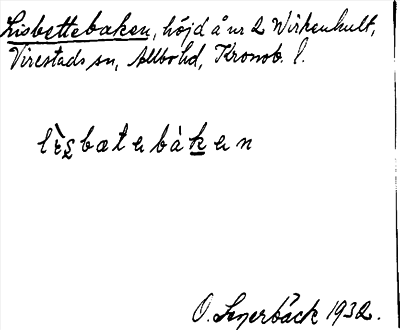 Lisbettebaken, höjd å nr 2 Wirkenhult,
Virestads sn, Allbo hd, Kronob. l.
lìsbætebàken
O. 1932.